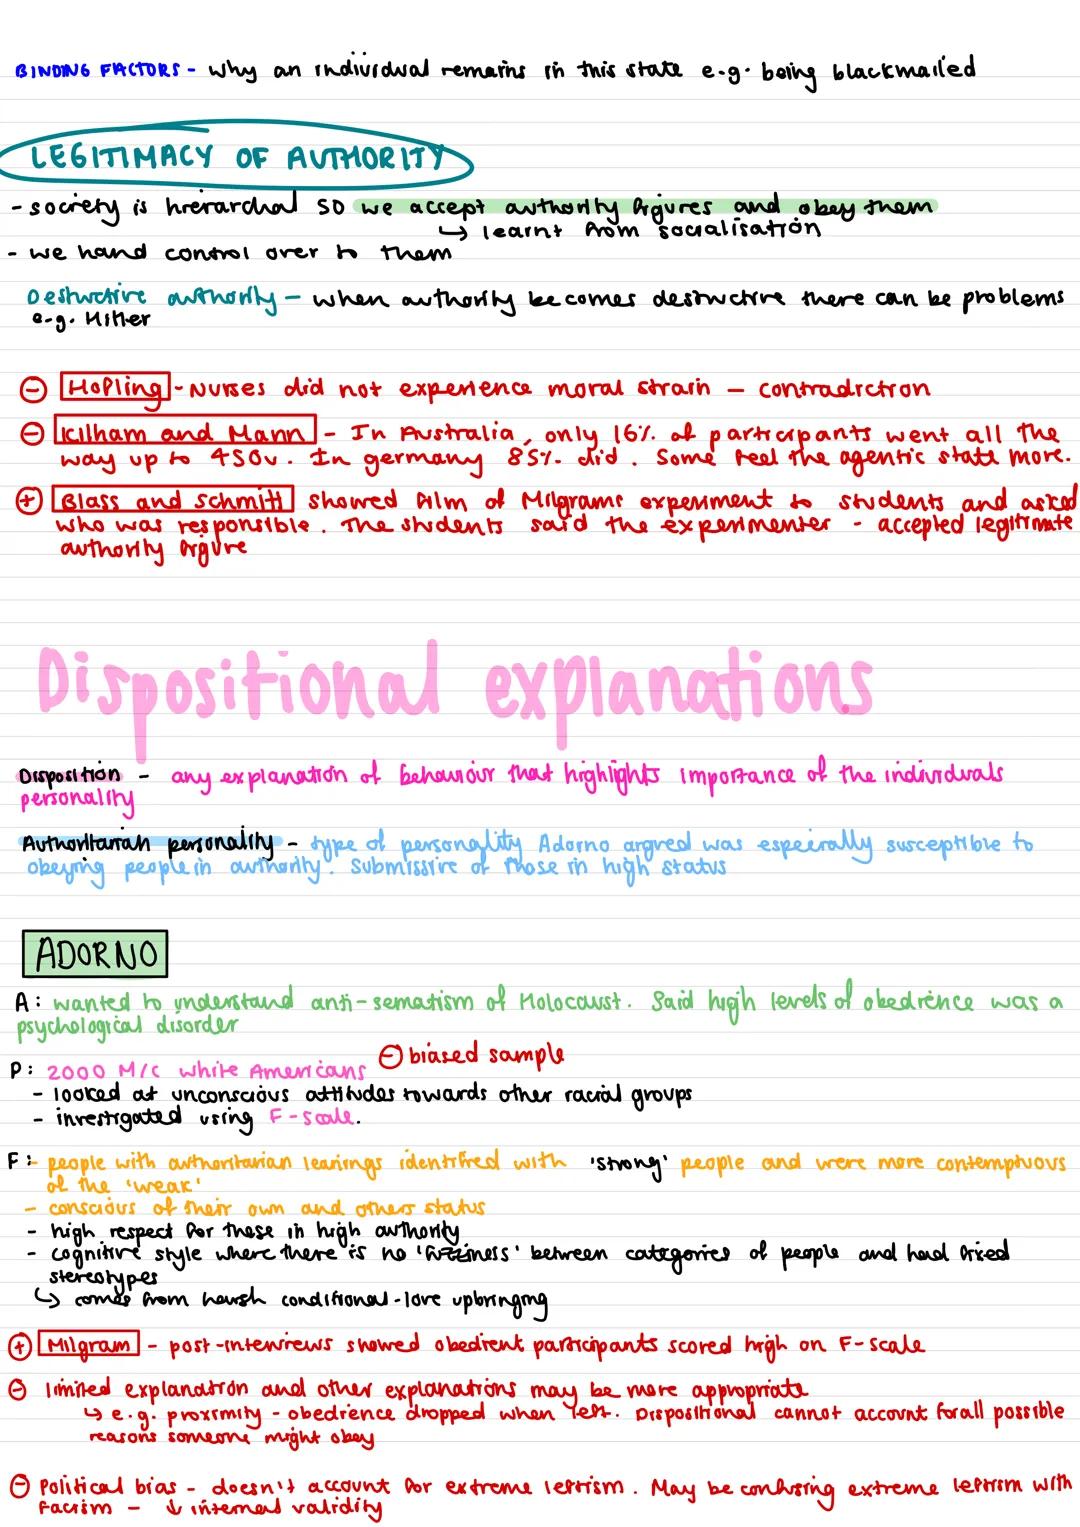 BINDING FACTORS - why an individual remains in this state e.g. being blackmailed
LEGITIMACY OF AUTHORITY
- society is hierarchal so we accept authority figures and obey them
↳ learnt from socialisation
- we hand control over to them
Destructive authority - when authority becomes destructive there can be problems
e.g. Hitler
⊖ Hofling - Nurses did not experience moral strain - contradiction
⊖ Kilham and Mann - In Australia, only 16% of participants went all the
way up to 450v. In germany 85% did. Some feel the agentic state more.
⊕ Blass and Schmitt showed film of Milgrams experiment to students and asked
who was responsible. The students said the experimenter - accepted legitimate
authority figure
Dispositional explanations
Disposition - any explanation of behaviour that highlights importance of the individuals
personality
Authoritarian personality - type of personality Adorno argued was especially susceptible to
obeying people in authority. Submissive of those in high status
ADORNO
A: wanted to understand anti-sematism of Holocaust. Said high levels of obedience was a
psychological disorder
P: 2000 M/C white Americans ⊖ biased sample
- looked at unconscious attitudes towards other racial groups
- investigated using F-scale.
F: - people with authoritarian leanings identified with 'strong' people and were more contemptuous
of the 'weak'
- conscious of their own and others status
- high respect for those in high authority
- cognitive style where there is no 'fuzziness' between categories of people and had fixed
stereotypes
↳ comes from harsh conditional-love upbringing
⊕ Milgram - post-interviews showed obedient participants scored high on F-scale
⊖ limited explanation and other explanations may be more appropriate
↳ e.g. proximity - obedience dropped when left. Dispositional cannot account for all possible
reasons someone might obey
⊖ Political bias - doesn't account for extreme leftism. May be confusing extreme leftism with
facism - ↓ internal validity